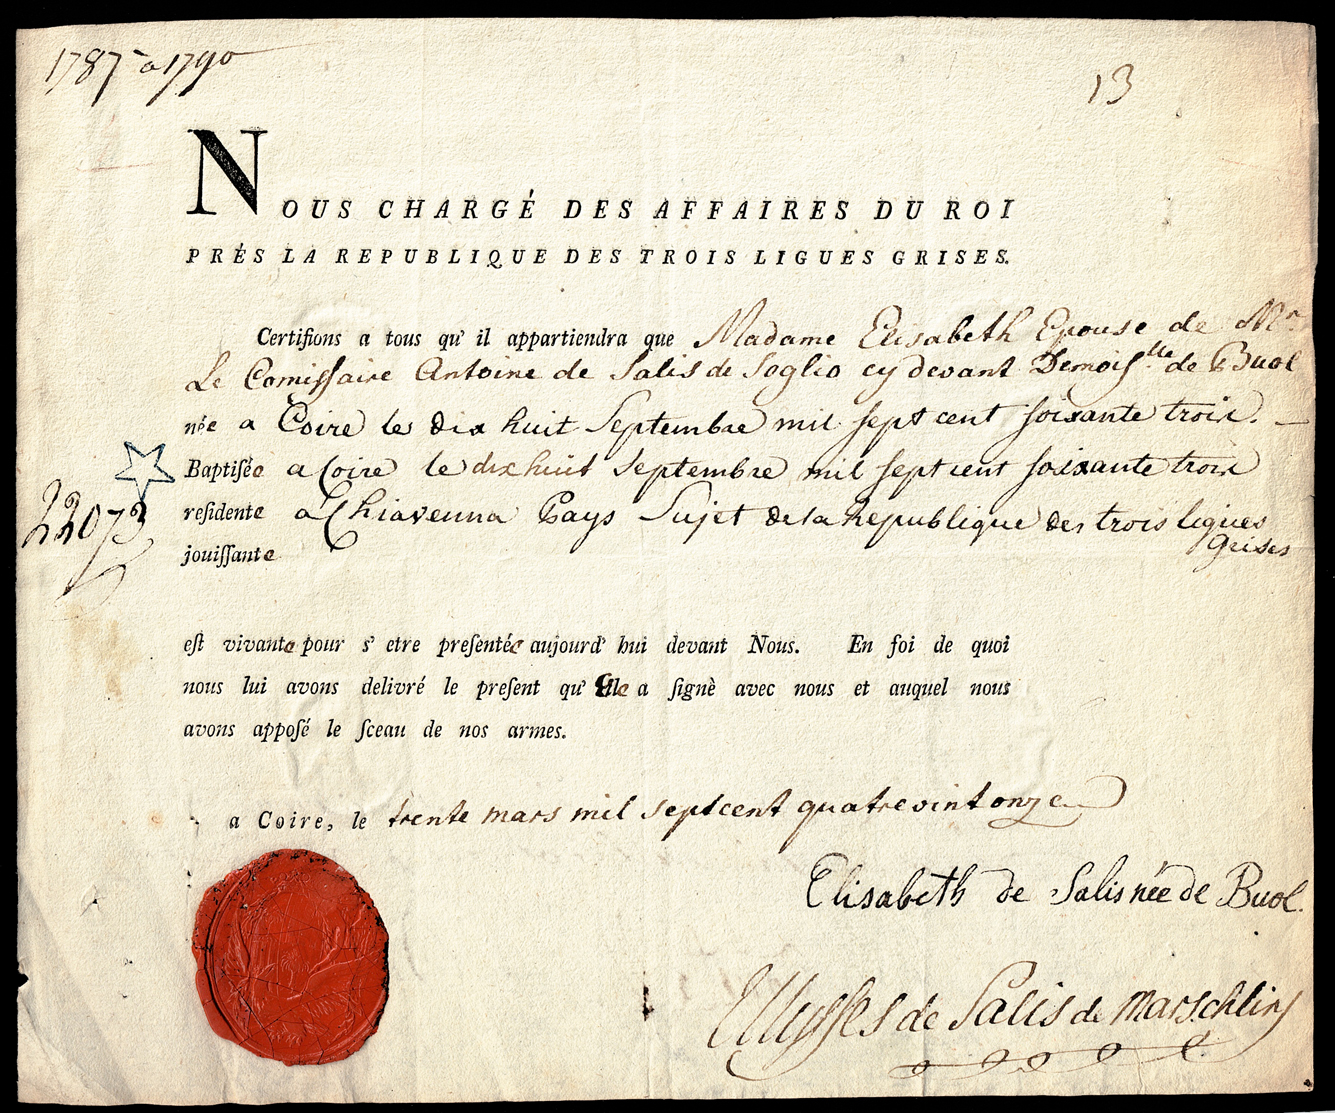 1787 à 1790
13
NOUS CHARGÉ DES AFFAIRES DU ROI
PRÉS LA REPUBLIQUE DES TROIS LIGUES GRISES.
Certifions a tous qu' il appartiendra que Madame Elisabeth Epouse de Mr.
Le Comissaire Antoine de Salis de Soglio cy devant Demoislle. de Buol
née a Coire le dix huit Septembre mil sept cent soixante trois. —
Baptisée a Coire le dix huit Septembre mil sept cent soixante trois
residente à Chiavenna Pays Sujet de la Republique des trois ligues
Grises
22073
jouissante
est vivante pour s' etre presentée aujourd' hui devant Nous. En foi de quoi
nous lui avons delivré le present qu' Elle a signè avec nous et auquel nous
avons apposé le sceau de nos armes.
a Coire, le trente mars mil sept cent quatre vint onze
Elisabeth de Salis née de Buol.
Ulysses de Salis de Marschlins